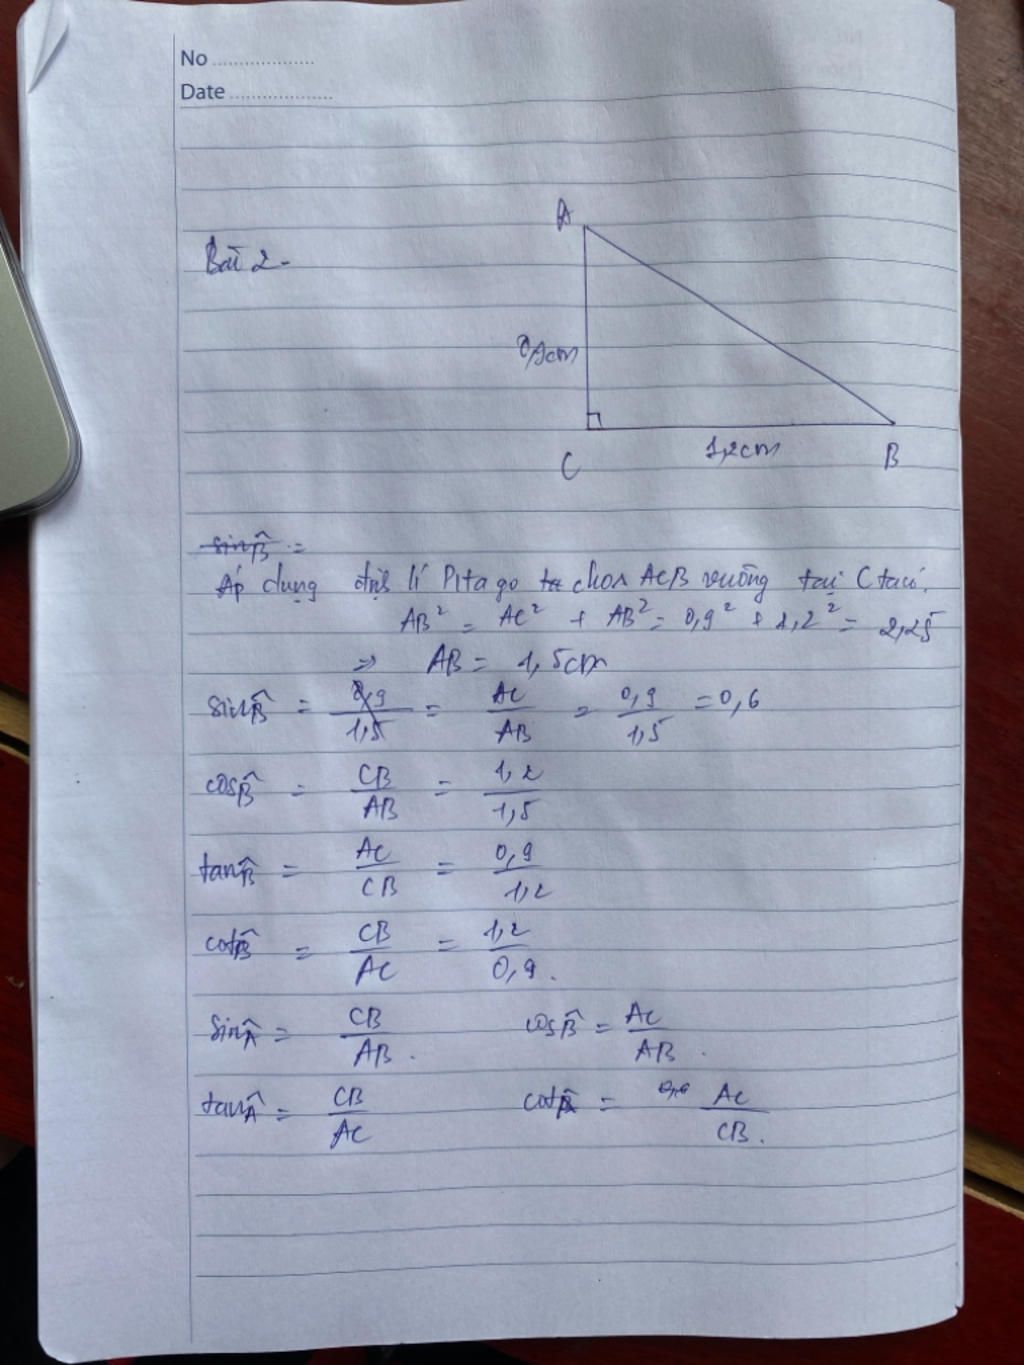 No ...................
Date ...................
A
Bài 2.
0,9cm
C
1,2cm
B
sin B̂ =
Áp dụng định lí Pitago ta cho △ ACB vuông tại C ta có.
AB² = AC² + AB² = 0,9² + 1,2² = 2,25
⇒ AB = 1,5cm
sin B̂ = 0,9/1,5 = AC/AB = 0,9/1,5 = 0,6
cos B̂ = CB/AB = 1,2/1,5
tan B̂ = AC/CB = 0,9/1,2
cot B̂ = CB/AC = 1,2/0,9.
sin Â = CB/AB. cos B̂ = AC/AB.
tan Â = CB/AC cot Â = AC/CB.